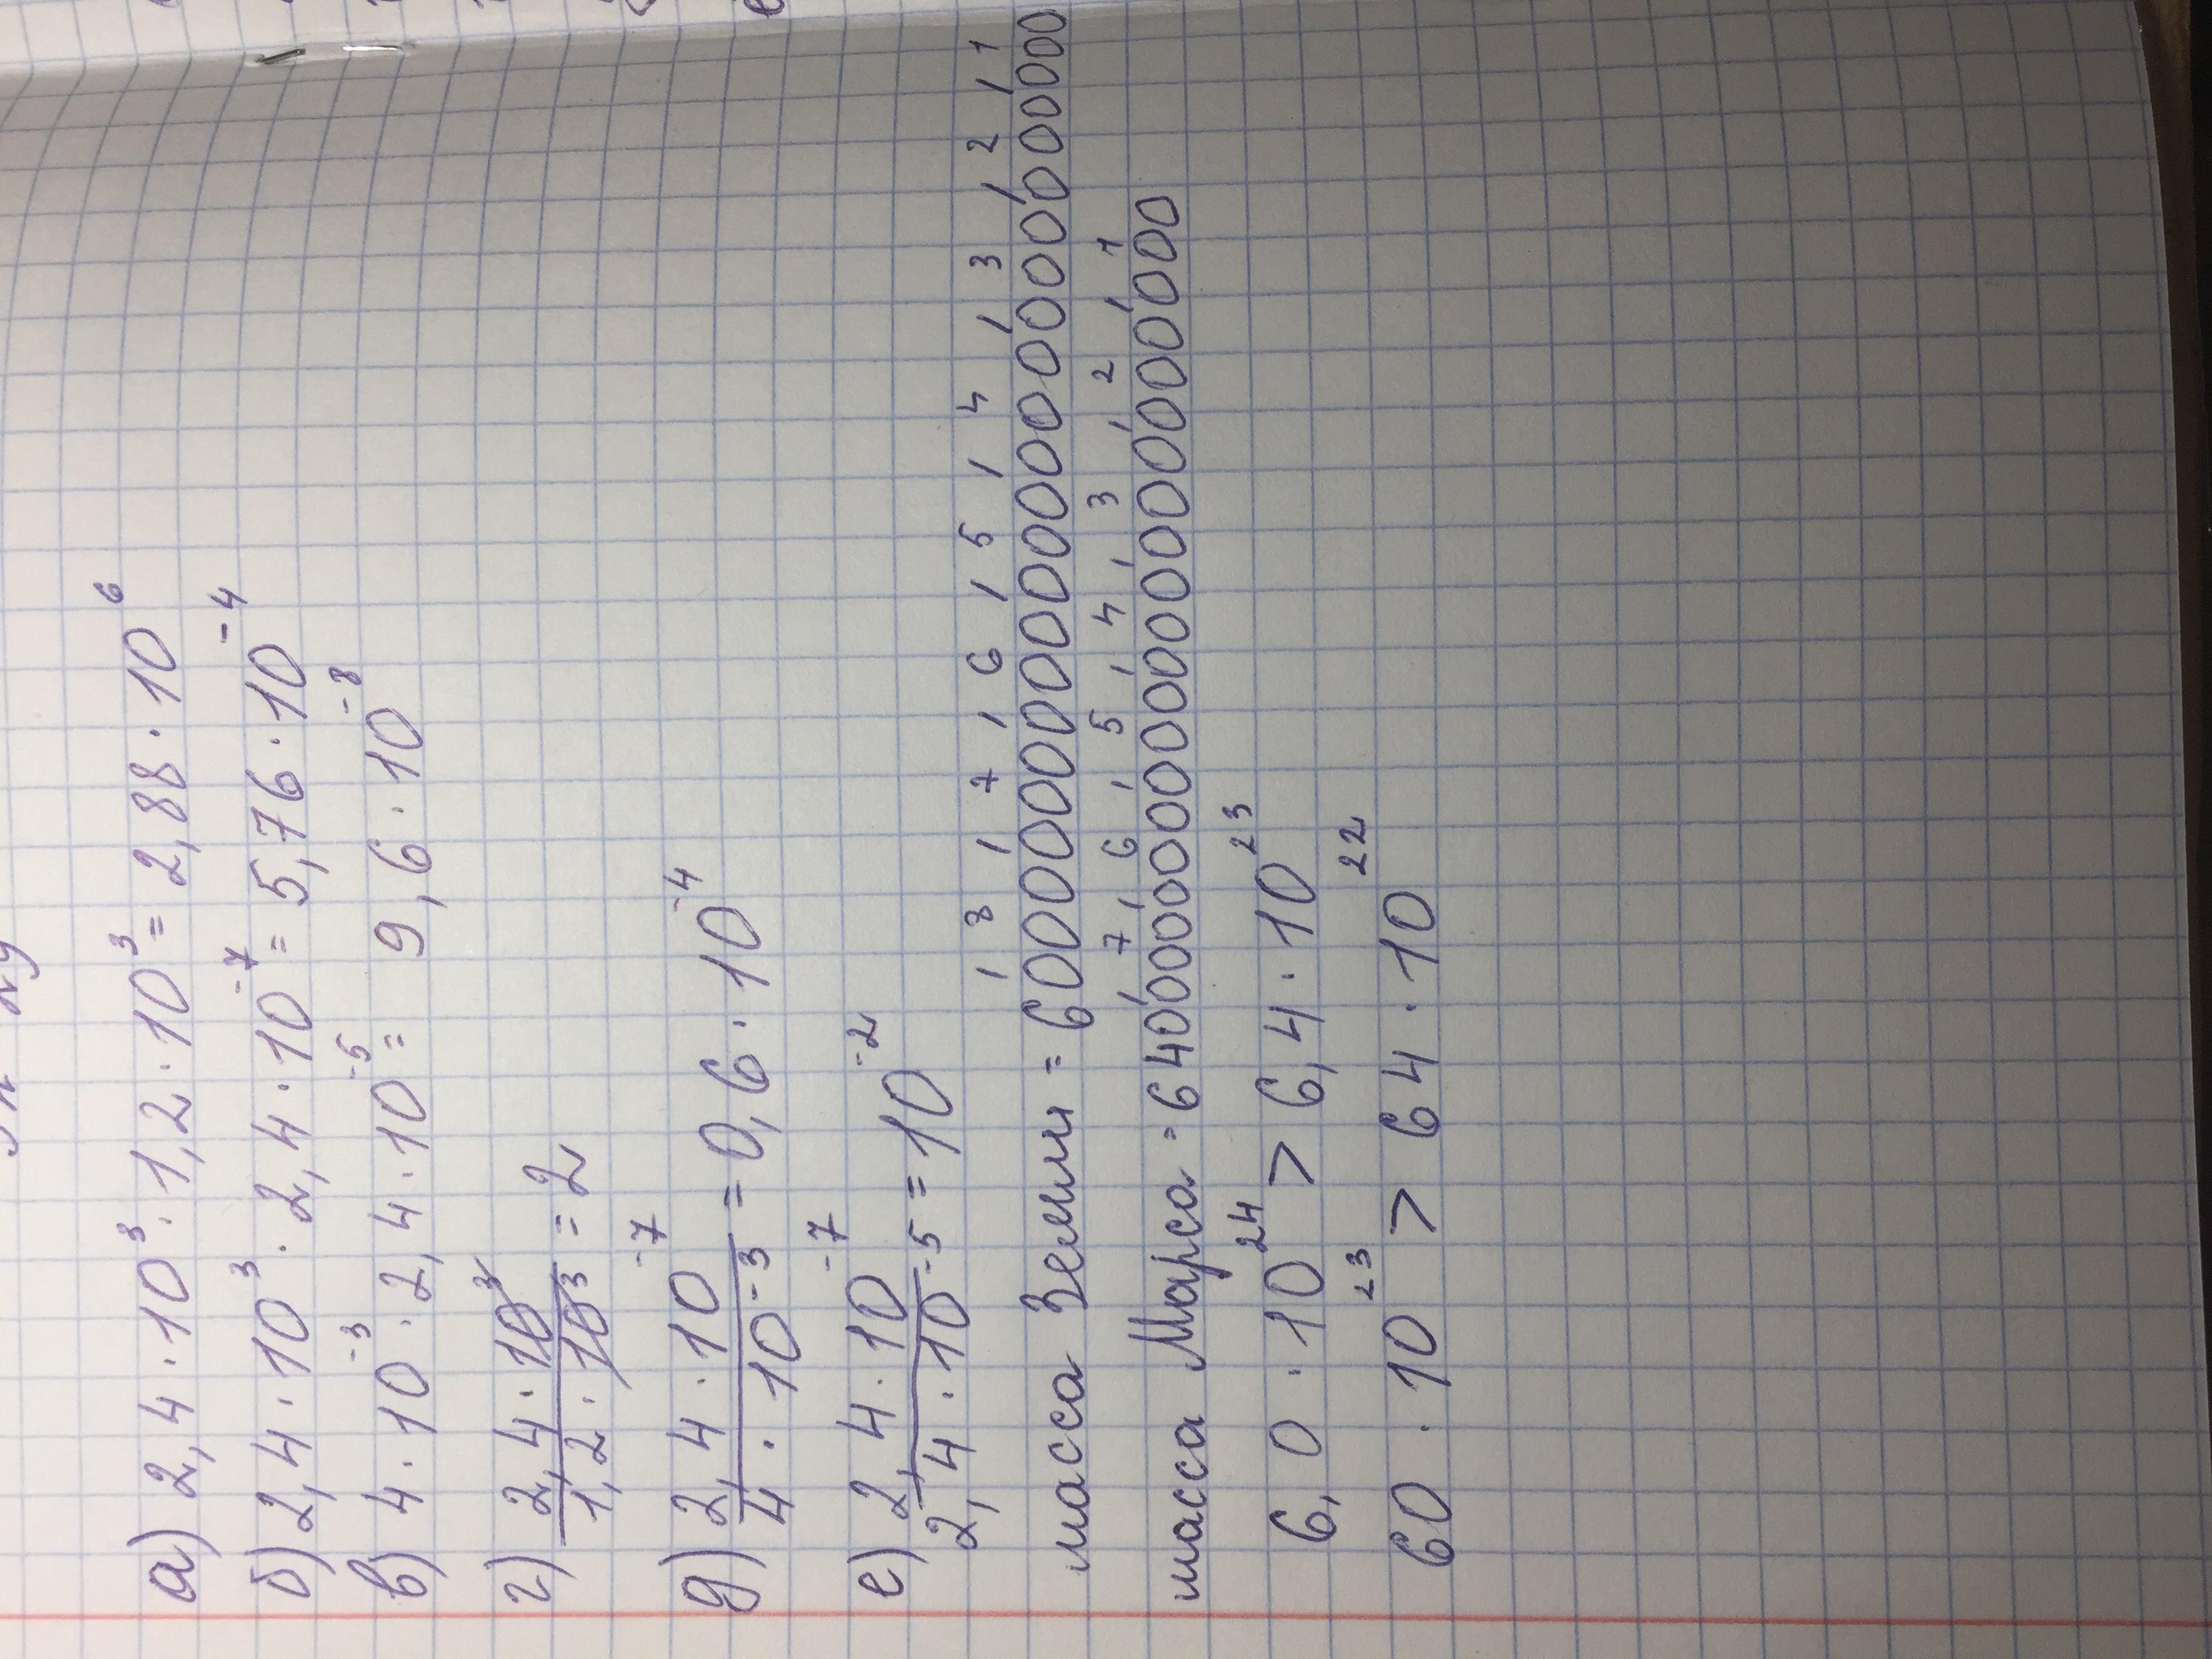 а) 2,4 · 10³ · 1,2 · 10³ = 2,88 · 10⁶
б) 2,4 · 10³ · 2,4 · 10⁻⁷ = 5,76 · 10⁻⁴
в) 4 · 10⁻³ · 2,4 · 10⁻⁵ = 9,6 · 10⁻⁸
г) 2,4 · 10³ / 1,2 · 10³ = 2
д) 2,4 · 10⁻⁷ / 4 · 10⁻³ = 0,6 · 10⁻⁴
е) 2,4 · 10⁻⁷ / 2,4 · 10⁻⁵ = 10⁻²
8 7 6 5 4 3 2 1
масса Земли = 6000000000000000000000000
7 6 5 4 3 2 1
масса Марса = 640000000000000000000000
6,0 · 10²⁴ > 6,4 · 10²³
60 · 10²³ > 64 · 10²²